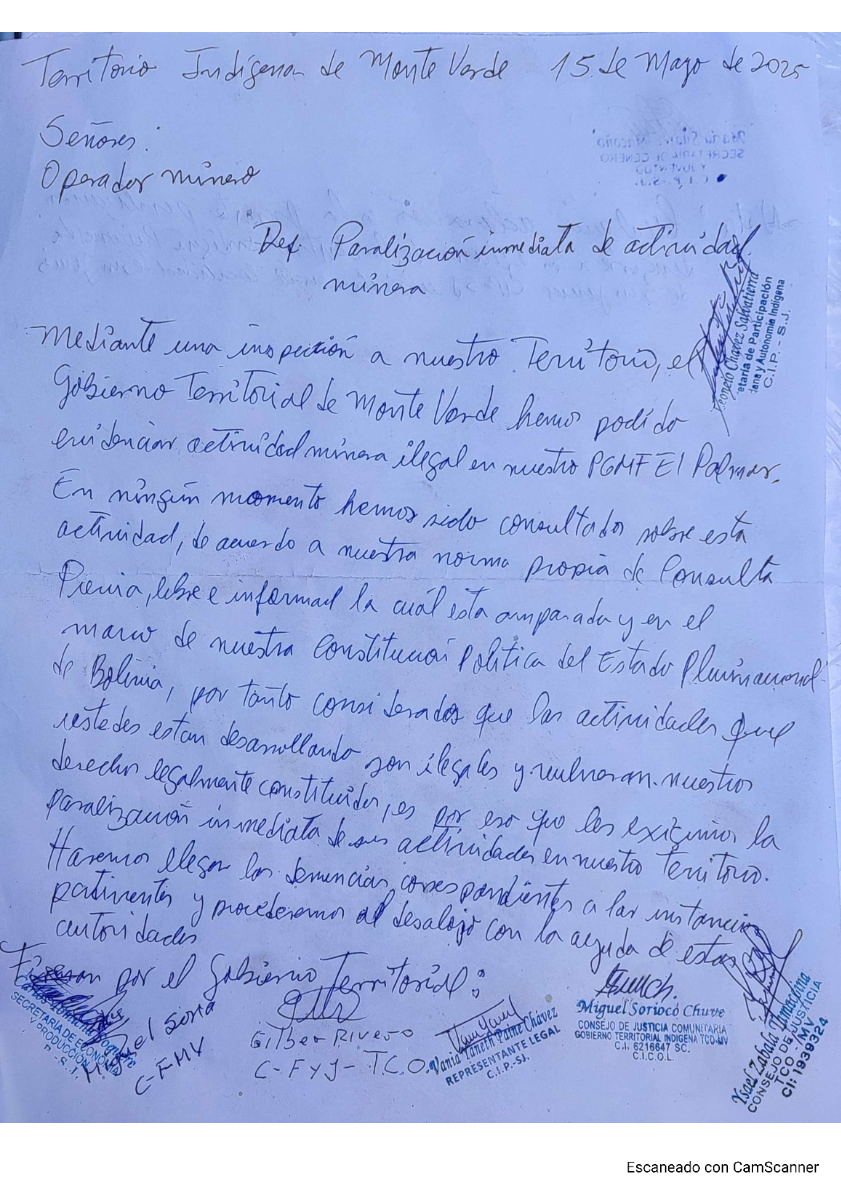 Territorio Indígena de Monte Verde 15 de Mayo de 2025
Señores:
Operador minero
Ref. Paralización inmediata de actividad
minera
Mediante una inspección a nuestro Territorio, el
Gobierno Territorial de Monte Verde hemo podido
evidenciar actividad minera ilegal en nuestro PGMF El Palmar.
En ningún momento hemos sido consultados sobre esta
actividad, de acuerdo a nuestra norma propia de Consulta
Previa, libre e informad la cuál esta amparada y en el
marco de nuestra Constitución Política del Estado Plurinacional
de Bolivia, por tanto considerados que las actividades que
ustedes estan desarrollando son ilegales y vulneran nuestros
derechos legalmente constituidos, es por eso que les exigimos la
paralización inmediata de sus actividades en nuestro Territorio.
Haremos llegar las denuncias correspondientes a las instancias
pertinentes y procederemos al desalojo con la ayuda de estas
autoridades
Firman por el Gobierno Territorial:
Chávez Salvatierra
etaria de Participación
iana y Autonomía Indígena
C.I.P. - S.J.
SECRETARIA DE ECONOMÍA
Y PRODUCCIÓN
Miguel Soria
C-FMV
Gilber Rivero
C-FyJ-T.C.O.
Vania Yaneth Paine Chávez
REPRESENTANTE LEGAL
C.I.P.-SJ.
Miguel Sorioco Chuve
CONSEJO DE JUSTICIA COMUNITARIA
GOBIERNO TERRITORIAL INDIGENA TCO-MV
C.I. 6216647 SC.
C.I.C.O.L
Ysael Zabala
CONSEJO DE JUSTICIA
TCO - MV
CI: 1939324
Escaneado con CamScanner